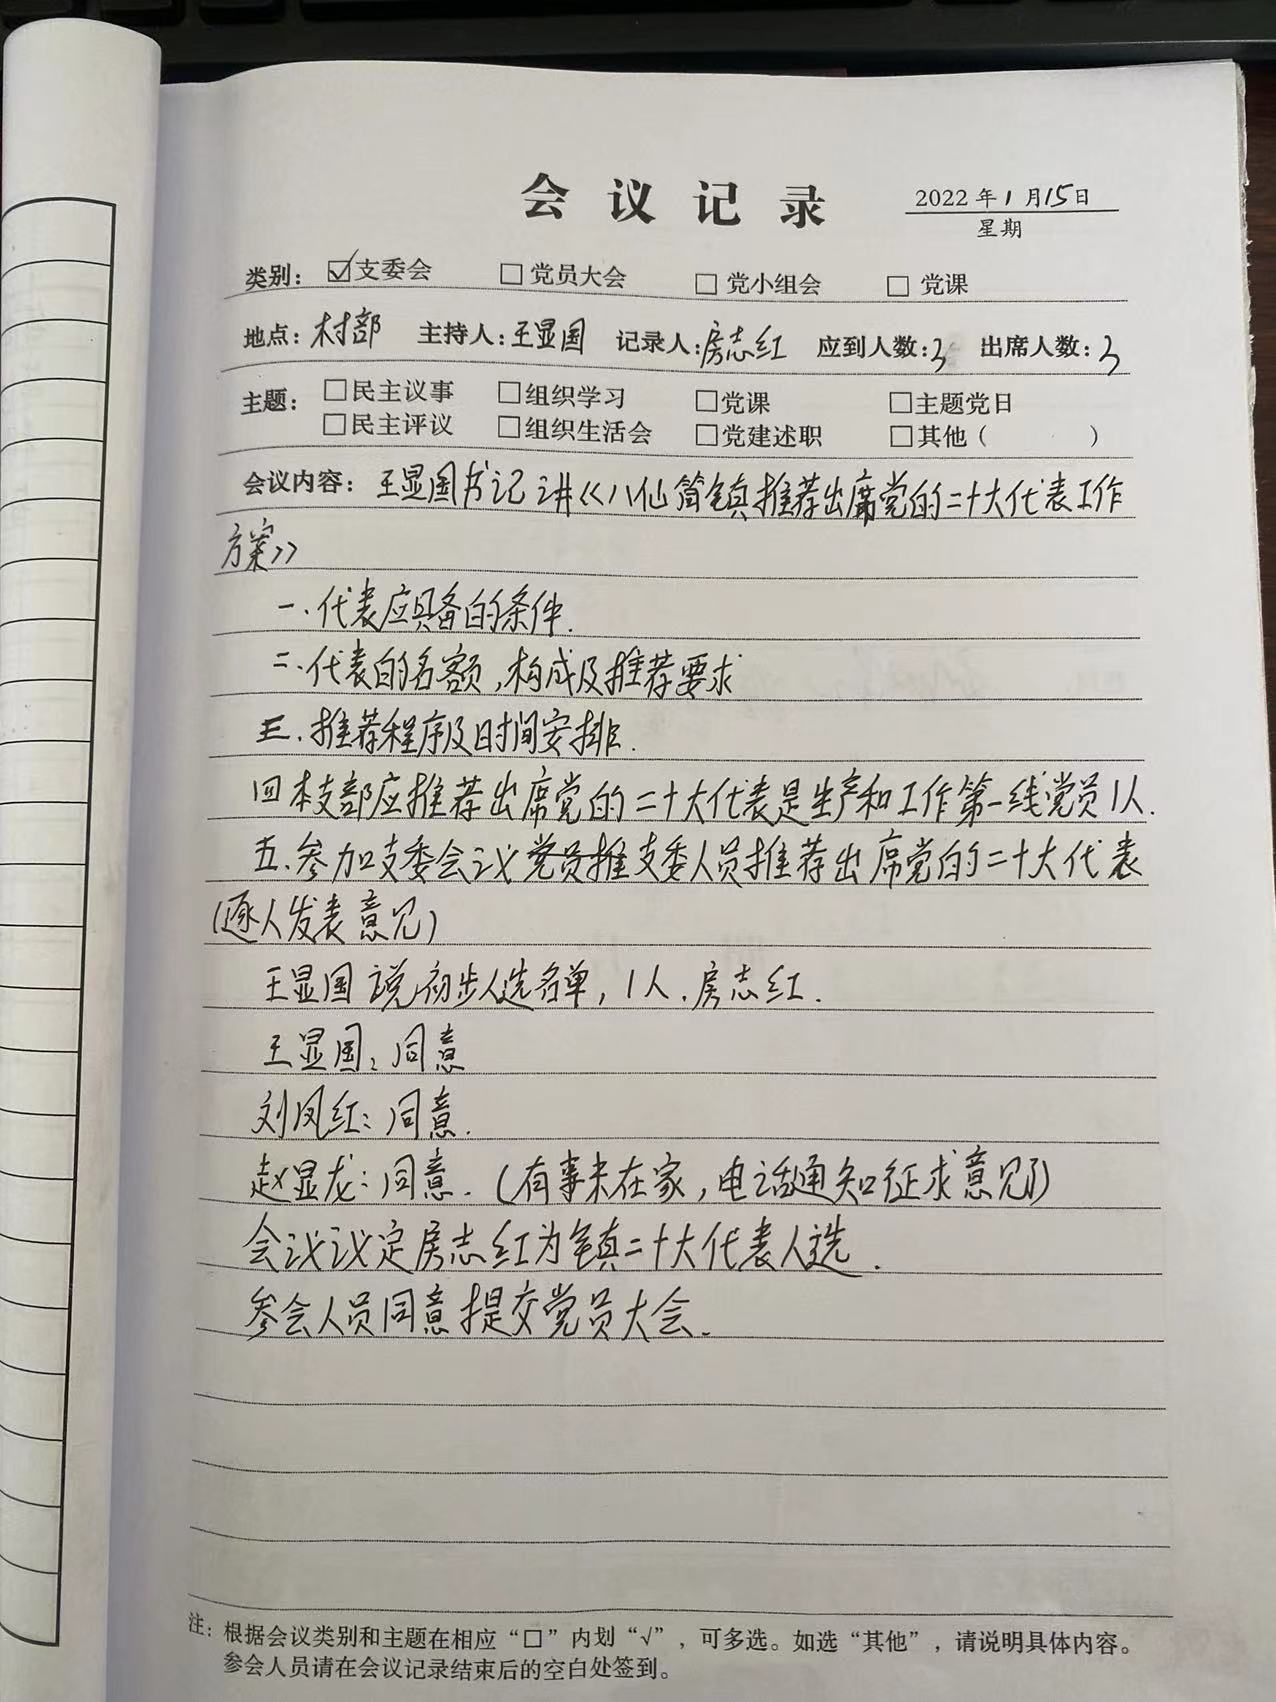 会议记录
2022年1月15日
星期
类别：☑支委会 □党员大会 □党小组会 □党课
地点：村部 主持人：王显国 记录人：房志红 应到人数：3 出席人数：3
主题：□民主议事 □组织学习 □党课 □主题党日
□民主评议 □组织生活会 □党建述职 □其他（ ）
会议内容：王显国书记讲《八仙筒镇推荐出席党的二十大代表工作
方案》
一、代表应具备的条件.
二、代表的名额,构成及推荐要求
三、推荐程序及时间安排.
四本支部应推荐出席党的二十大代表是生产和工作第一线党员1人.
五、参加支委会议党员推支委人员推荐出席党的二十大代表
(逐人发表意见)
王显国说初步人选名单,1人.房志红.
王显国：同意
刘凤红：同意.
赵显龙：同意.(有事未在家,电话通知征求意见了)
会议议定房志红为镇二十大代表人选.
参会人员同意提交党员大会.
注：根据会议类别和主题在相应“□”内划“√”，可多选。如选“其他”，请说明具体内容。
参会人员请在会议记录结束后的空白处签到。